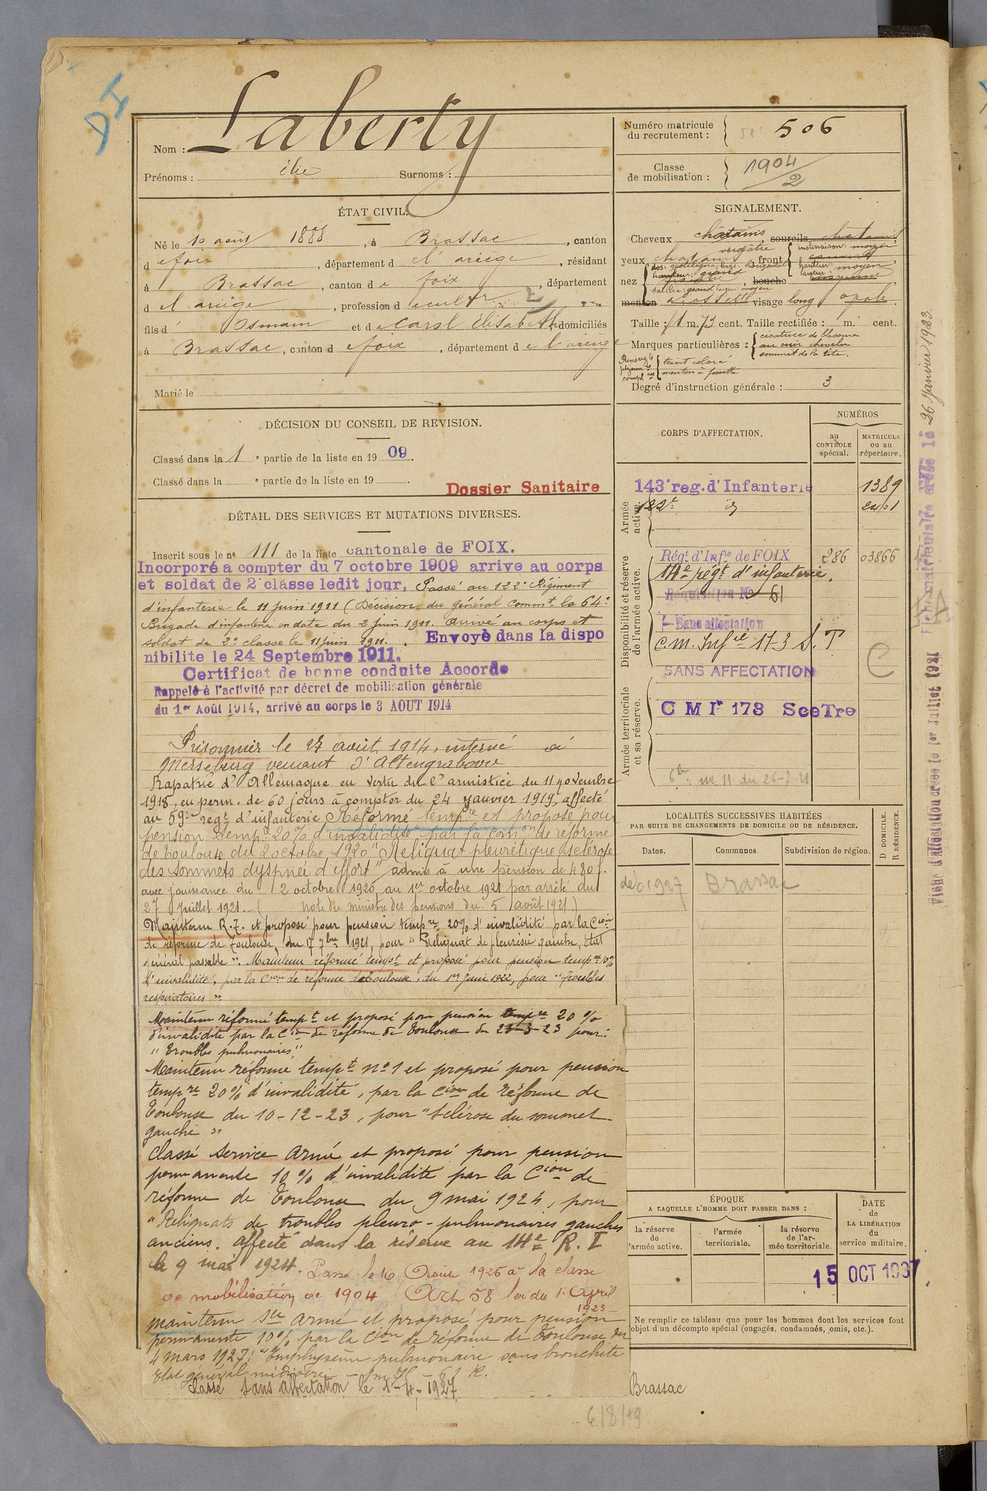 DI
Nom : Laberty
Prénoms : élie Surnoms :
Numéro matricule
du recrutement : 506
Classe
de mobilisation : 1904/2
ÉTAT CIVIL.
Né le 10 août 1888, à Brassac, canton
d e foix, département d e l'ariège, résidant
à Brassac, canton d e foix, département
d e l'ariège, profession d
fils d' Osmain et d e Carol Elisabeth domiciliés
à Brassac, canton d e foix, département d e l'ariège
Marié le
SIGNALEMENT.
Cheveux chatains sourcils chatains
yeux front
nez bouche
menton visage long
Taille : 1 m. 73 cent. Taille rectifiée : m. cent.
Marques particulières : cicatrice de
au cuir chevelu
sommet de la tête.
teint coloré
menton à fossette
Degré d'instruction générale : 3
DÉCISION DU CONSEIL DE REVISION.
Classé dans la 1 e partie de la liste en 1909.
Classé dans la e partie de la liste en 19 .
Dossier Sanitaire
DÉTAIL DES SERVICES ET MUTATIONS DIVERSES.
Inscrit sous le n° 111 de la liste cantonale de FOIX.
Incorporé a compter du 7 octobre 1909 arrive au corps
et soldat de 2e classe ledit jour, Passé au 122e Régiment
d'infanterie le 11 juin 1911 (Décision du général Commt la 64e
Brigade d'infanterie en date du 2 juin 1911. Arrivé au corps et
soldat de 2e classe le 11 juin 1911. Envoyé dans la dispo
nibilite le 24 Septembre 1911.
Certificat de bonne conduite Accordé
Rappelé à l'activité par décret de mobilisation générale
du 1er Août 1914, arrivé au corps le 3 AOUT 1914
Prisonnier le 27 août 1914, interné à
Merseburg venant d'Altengrabow
Rapatrié d'Allemagne en vertu de l'armistice du 11 novembre
1918, en perm. de 60 jours à compter du 24 janvier 1919, affecté
au 59e regt d'infanterie Réformé tempre et proposé pour
pension tempre 20% d'invalidité par la Con de réforme
de Toulouse du 2 octobre 1920 "Reliquat pleurétique sclérose
des sommets dyspnée d'effort" admis à une pension de 480 f.
avec jouissance du 2 octobre 1920 au 1er octobre 1921 par arrêté du
27 juillet 1921. (note du ministre des pensions du 5 août 1921)
Maintenu R.T. et proposé pour pension tempre 20% d'invalidité par la Cion
de réforme de Toulouse, du 17 7bre 1921, pour "Reliquat de pleurésie gauche, Etat
général passable". Maintenu réformé tempt et proposé pour pension tempre 10%
d'invalidité, par la Cion de réforme de Toulouse, du 1er juin 1922, pour "troubles
respiratoires".
Maintenu réformé tempt et proposé pour pension tempre 20%
d'invalidité par la Cion de réforme de Toulouse du 23-3-23 pour :
"troubles pulmonaires"
Maintenu réformé tempt n°1 et proposé pour pension
tempre 20% d'invalidité, par la Cion de réforme de
Toulouse du 10-12-23, pour "Sclérose du sommet
gauche"
Classé Service Armé et proposé pour pension
permanente 10% d'invalidité par la Cion de
réforme de Toulouse du 9 mai 1924, pour
"Reliquats de troubles pleuro-pulmonaires gauches
anciens. affecté dans la réserve au 14e R.I
le 9 mai 1924. Passé le 16 Avril 1926 à la classe
de mobilisation de 1904 (Art 58 loi du 1er Avril
1923
maintenu Sce armé et proposé pour pension
permanente 10% par la Cion de réforme de Toulouse du
4 mars 1927 : "Emphysème pulmonaire sans bronchite
Etat général médiocre
Classé sans affectation le 1-4-1927
CORPS D'AFFECTATION.
NUMÉROS
au
CONTRÔLE
spécial.
MATRICULE
ou au
répertoire.
Armée
active.
143e reg. d'Infanterie 1389
122e
Disponibilité et réserve
de l'armée active.
Régt d'Infie de FOIX 286 03866
14e régt d'infanterie.
Réquisition No 61
Sans affectation
C.M. Infie 17-3 S.T
Armée territoriale
et sa réserve.
SANS AFFECTATION
C M Ir 173 SceTre
C
LOCALITÉS SUCCESSIVES HABITÉES
PAR SUITE DE CHANGEMENTS DE DOMICILE OU DE RÉSIDENCE.
Dates.
Communes
Subdivision de région.
D DOMICILE.
R RÉSIDENCE.
1927 Brassac
ÉPOQUE
A LAQUELLE L'HOMME DOIT PASSER DANS :
la réserve
de
l'armée active.
l'armée
territoriale.
la réserve
de l'ar-
mée territoriale.
DATE
de
LA LIBÉRATION
du
service militaire.
15 OCT 1937
Ne remplir ce tableau que pour les hommes dont les services font
l'objet d'un décompte spécial (engagés, condamnés, omis, etc.).
Brassac
6/8/19
26 Janvier 1923.
Fiche d'affectation créée le 1er Juillet 1921